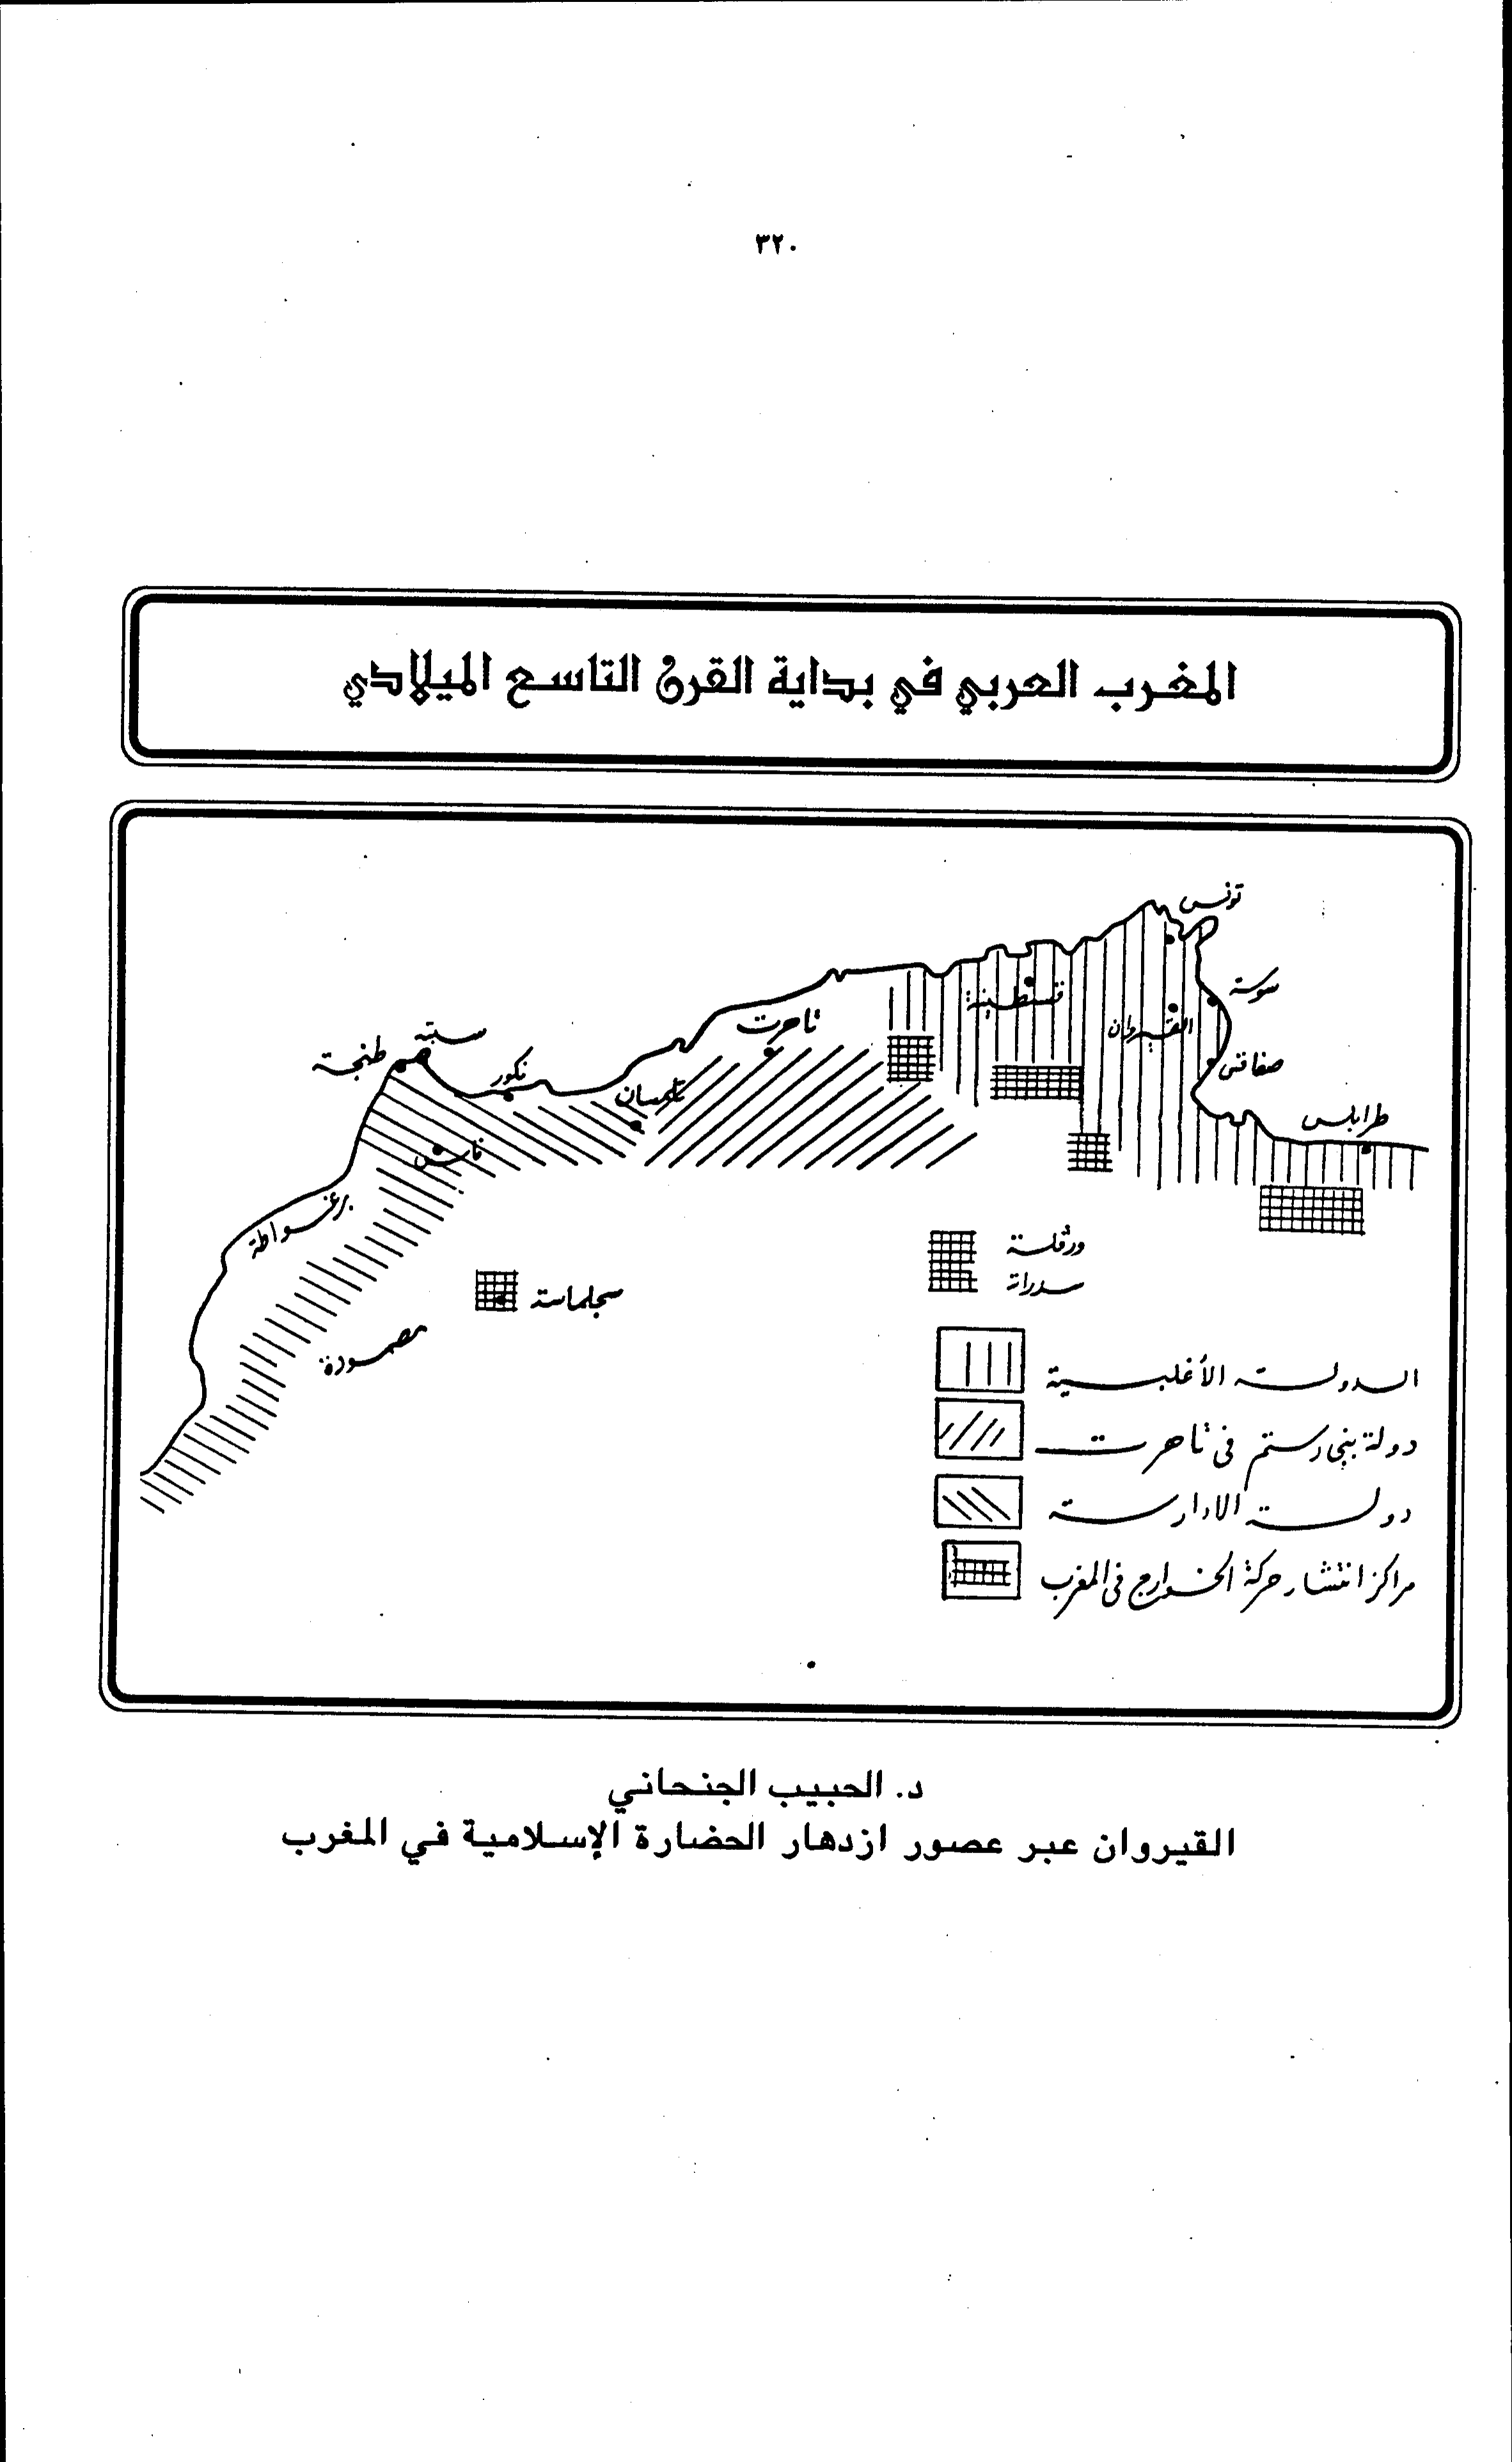 ٣٢٠
المغرب العربي في بداية القرن التاسع الميلادي
تونس
سوسة
قسنطينة
القيروان
صفاقس
تاهرت
سبتة
طنجة
نكور
تلمسان
طرابلس
فاس
برغواطة
ورقلة
سدراتة
سجلماسة
مصمودة
الدولة الأغلبية
دولة بني رستم في تاهرت
دولة الادارسة
مراكز انتشار حركة الخوارج في المغرب
د. الحبيب الجنحاني
القيروان عبر عصور ازدهار الحضارة الإسلامية في المغرب